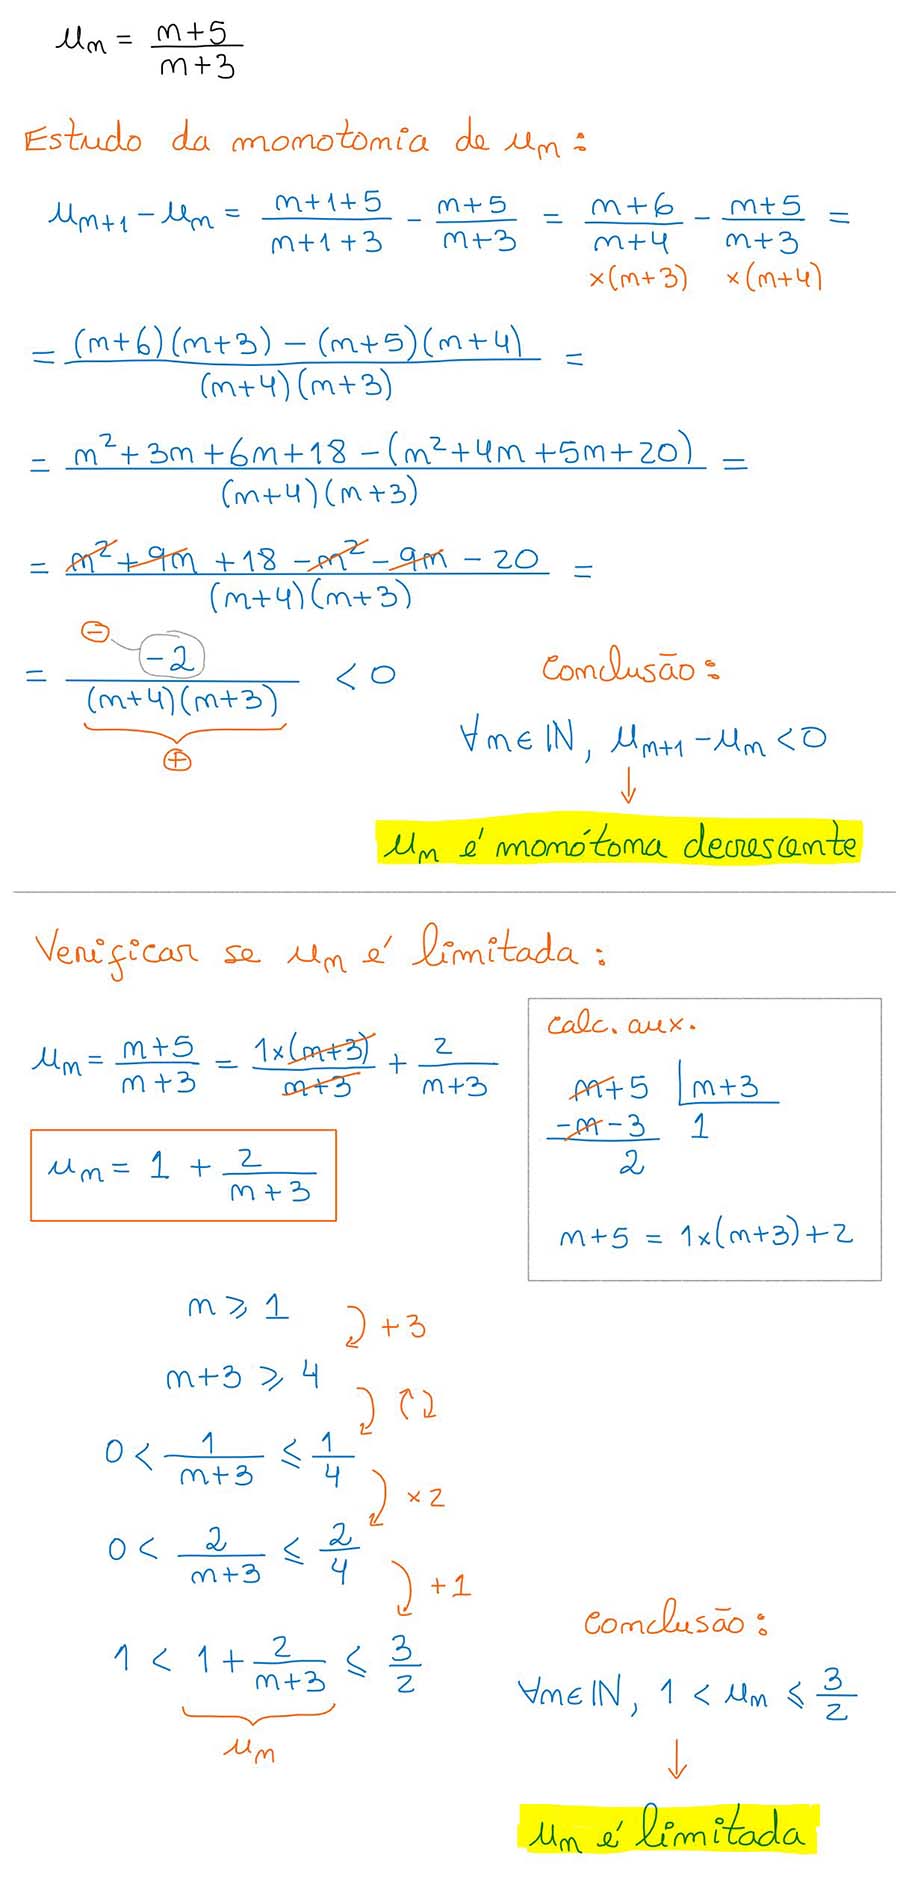 un = n+5/n+3
Estudo da monotonia de un:
un+1 - un = n+1+5/n+1+3 - n+5/n+3 = n+6/n+4 - n+5/n+3 =
×(n+3) ×(n+4)
= (n+6)(n+3) - (n+5)(n+4)/(n+4)(n+3) =
= n²+3n+6n+18-(n²+4n+5n+20)/(n+4)(n+3) =
= n²+9n+18-n²-9n-20/(n+4)(n+3) =
⊖
= -2/(n+4)(n+3) < 0
⊕
Conclusão:
∀n∈IN, un+1 - un < 0
↓
un é monótona decrescente
Verificar se un é limitada:
un = n+5/n+3 = 1×(n+3)/n+3 + 2/n+3
un = 1 + 2/n+3
calc. aux.
n+5 | n+3
-n-3 1
2
n+5 = 1×(n+3)+2
n ⩾ 1
+3
n+3 ⩾ 4
0 < 1/n+3 ⩽ 1/4
×2
0 < 2/n+3 ⩽ 2/4
+1
1 < 1 + 2/n+3 ⩽ 3/2
un
Conclusão:
∀n∈IN, 1 < un ⩽ 3/2
↓
un é limitada